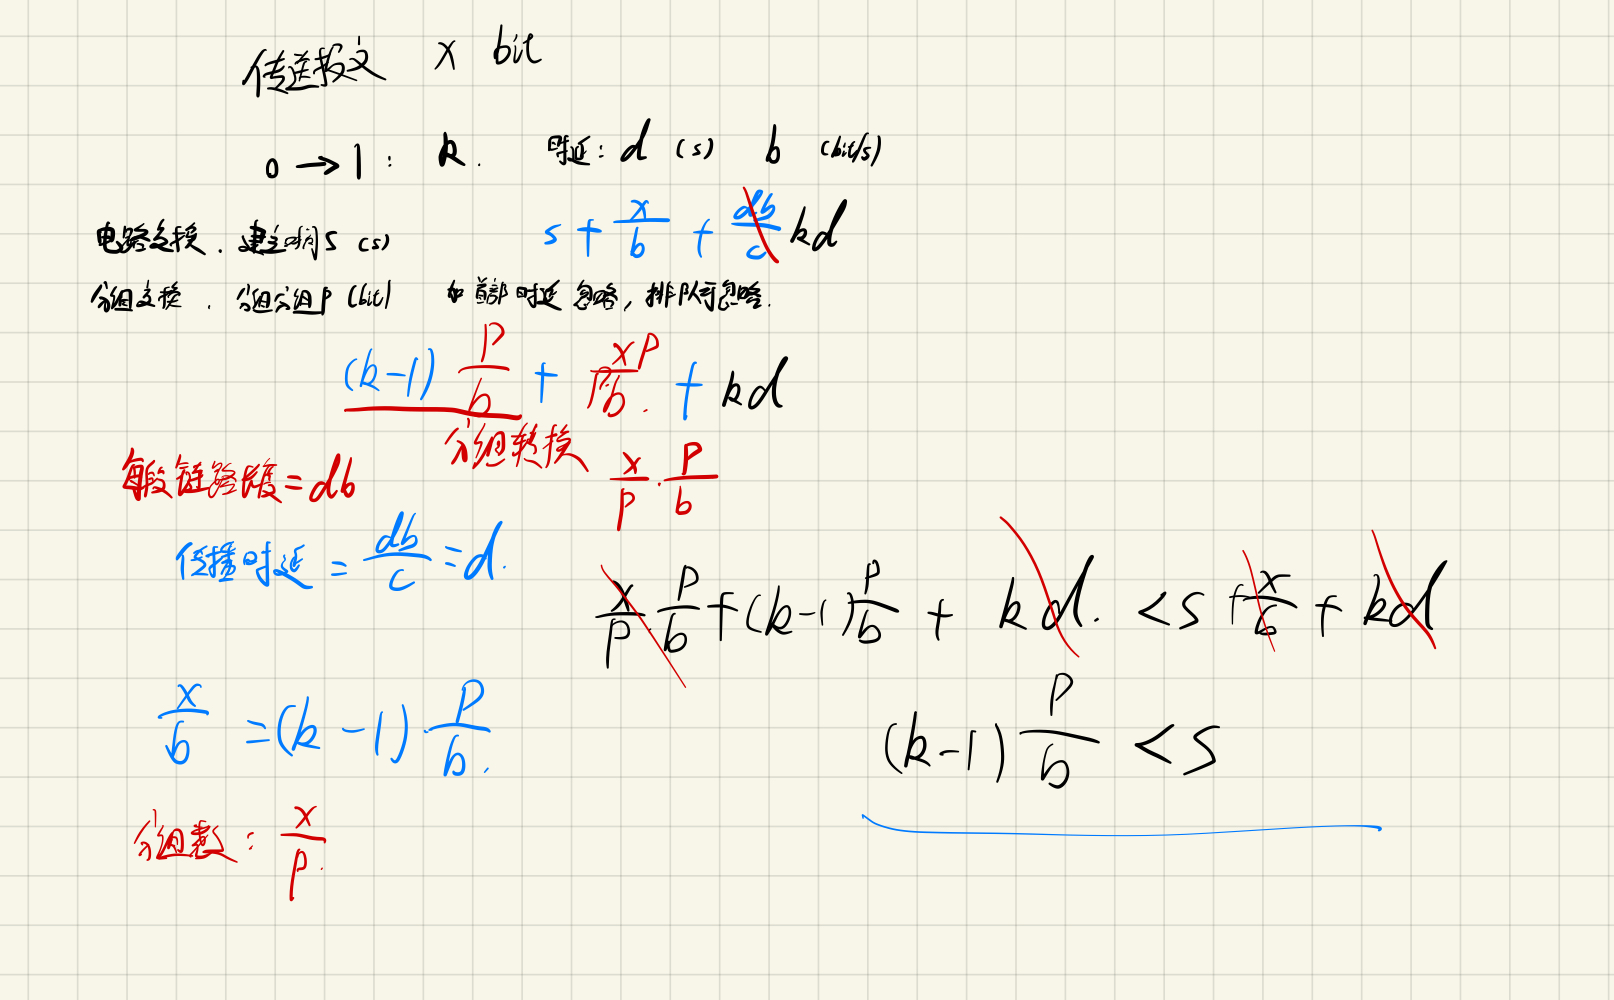 传送报文 x bit
0 → 1 : k. 时延: d (s) b (bit/s)
电路交换. 建立时间 s (s) s + x/b + db/c kd
分组交换. 分组分组 p (bit) 加首部时延忽略, 排队可忽略.
(k-1) p/b + xp/pb. + kd
分组转换
每段链路长度 = db x/p · p/b
传播时延 = db/c = d.
x/p · p/b + (k-1) p/b + kd. < s + x/b + kd
x/b = (k-1) · p/b.
(k-1) p/b < s
分组数: x/p.